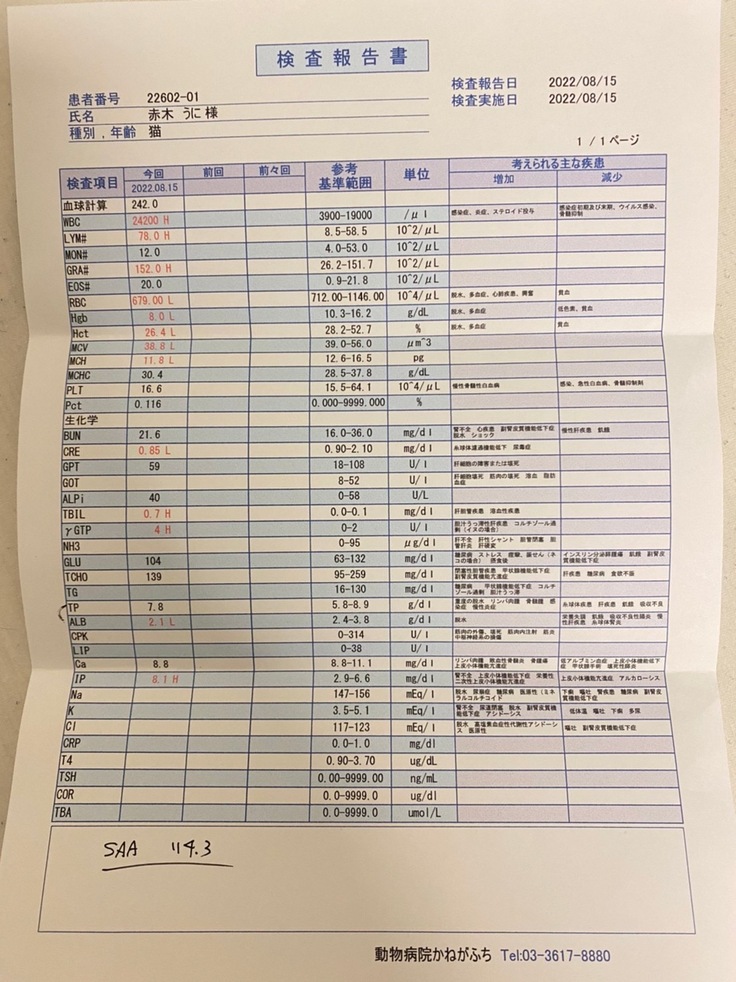 検査報告書
患者番号 22602-01
氏名 赤木 うに 様
種別，年齢 猫
検査報告日 2022/08/15
検査実施日 2022/08/15
1 / 1ページ
検査項目 今回 前回 前々回 参考基準範囲 単位 考えられる主な疾患
2022.08.15 増加 減少
血球計算 242.0
WBC 24200 H 3900-19000 /μl 感染症、炎症、ステロイド投与 感染症初期及び末期、ウイルス感染、骨髄抑制
LYM# 78.0 H 8.5-58.5 10^2/μL
MON# 12.0 4.0-53.0 10^2/μL
GRA# 152.0 H 26.2-151.7 10^2/μL
EOS# 20.0 0.9-21.8 10^2/μL
RBC 679.00 L 712.00-1146.00 10^4/μL 脱水、多血症、心肺疾患、興奮 貧血
Hgb 8.0 L 10.3-16.2 g/dL 脱水、多血症 低色素、貧血
Hct 26.4 L 28.2-52.7 % 脱水、多血症 貧血
MCV 38.8 L 39.0-56.0 μm^3
MCH 11.8 L 12.6-16.5 pg
MCHC 30.4 28.5-37.8 g/dL
PLT 16.6 15.5-64.1 10^4/μL 慢性骨髄性白血病 感染、急性白血病、骨髄抑制剤
Pct 0.116 0.000-9999.000 %
生化学
BUN 21.6 16.0-36.0 mg/dl 腎不全 心疾患 副腎皮質機能低下症 脱水 ショック 慢性肝疾患 飢餓
CRE 0.85 L 0.90-2.10 mg/dl 糸球体濾過機能低下 尿毒症
GPT 59 18-108 U/l 肝細胞の障害または壊死
GOT 8-52 U/l 肝細胞壊死 筋肉の壊死 溶血 脂肪血症
ALPi 40 0-58 U/L
TBIL 0.7 H 0.0-0.1 mg/dl 肝胆管疾患 溶血性疾患
γGTP 4 H 0-2 U/l 胆汁うっ滞性肝疾患 コルチゾール過剰（イヌの場合）
NH3 0-95 μg/dl 肝不全 肝性シャント 胆管閉塞 胆管肝炎 肝硬変
GLU 104 63-132 mg/dl 糖尿病 ストレス 痙攣、振せん（ネコの場合） 摂食後 インスリン分泌膵腫瘍 飢餓 副腎皮質機能低下症
TCHO 139 95-259 mg/dl 閉塞性胆管疾患 甲状腺機能低下症 副腎皮質機能亢進症 肝疾患 糖尿病 食欲不振
TG 16-130 mg/dl 糖尿病 甲状腺機能低下症 コルチゾール過剰 胆汁うっ滞
TP 7.8 5.8-8.9 g/dl 重度の脱水 リンパ肉腫 骨髄腫 感染症 慢性炎症 糸球体疾患 肝疾患 飢餓 吸収不良
ALB 2.1 L 2.4-3.8 g/dl 脱水 栄養失調 飢餓 吸収不良性腸炎 慢性肝疾患 糸球体腎炎
CPK 0-314 U/l 筋肉の外傷、壊死 筋肉内注射 筋炎 中枢神経系の損傷
LIP 0-38 U/l
Ca 8.8 8.8-11.1 mg/dl リンパ肉腫 敗血性骨髄炎 骨腫瘍 上皮小体機能亢進症 低アルブミン血症 上皮小体機能低下症 甲状腺手術 壊死性膵炎
IP 8.1 H 2.9-6.6 mg/dl 腎不全 上皮小体機能低下症 栄養性二次性上皮小体機能亢進症 上皮小体機能亢進症 アルカローシス
Na 147-156 mEq/l 脱水 尿崩症 糖尿病 医原性（ミネラルコルチコイド 下痢 嘔吐 腎疾患 糖尿病 副腎皮質機能低下症
K 3.5-5.1 mEq/l 腎不全 尿道閉塞 脱水 副腎皮質機能低下症 アシドーシス 低体温 嘔吐 下痢 多尿
Cl 117-123 mEq/l 脱水 高塩素血症性代謝性アシドーシス 医原性 嘔吐 副腎皮質機能低下症
CRP 0.0-1.0 mg/dl
T4 0.90-3.70 ug/dL
TSH 0.00-9999.00 ng/mL
COR 0.0-9999.0 ug/dl
TBA 0.0-9999.0 umol/L
SAA 114.3
動物病院かねがふち Tel:03-3617-8880